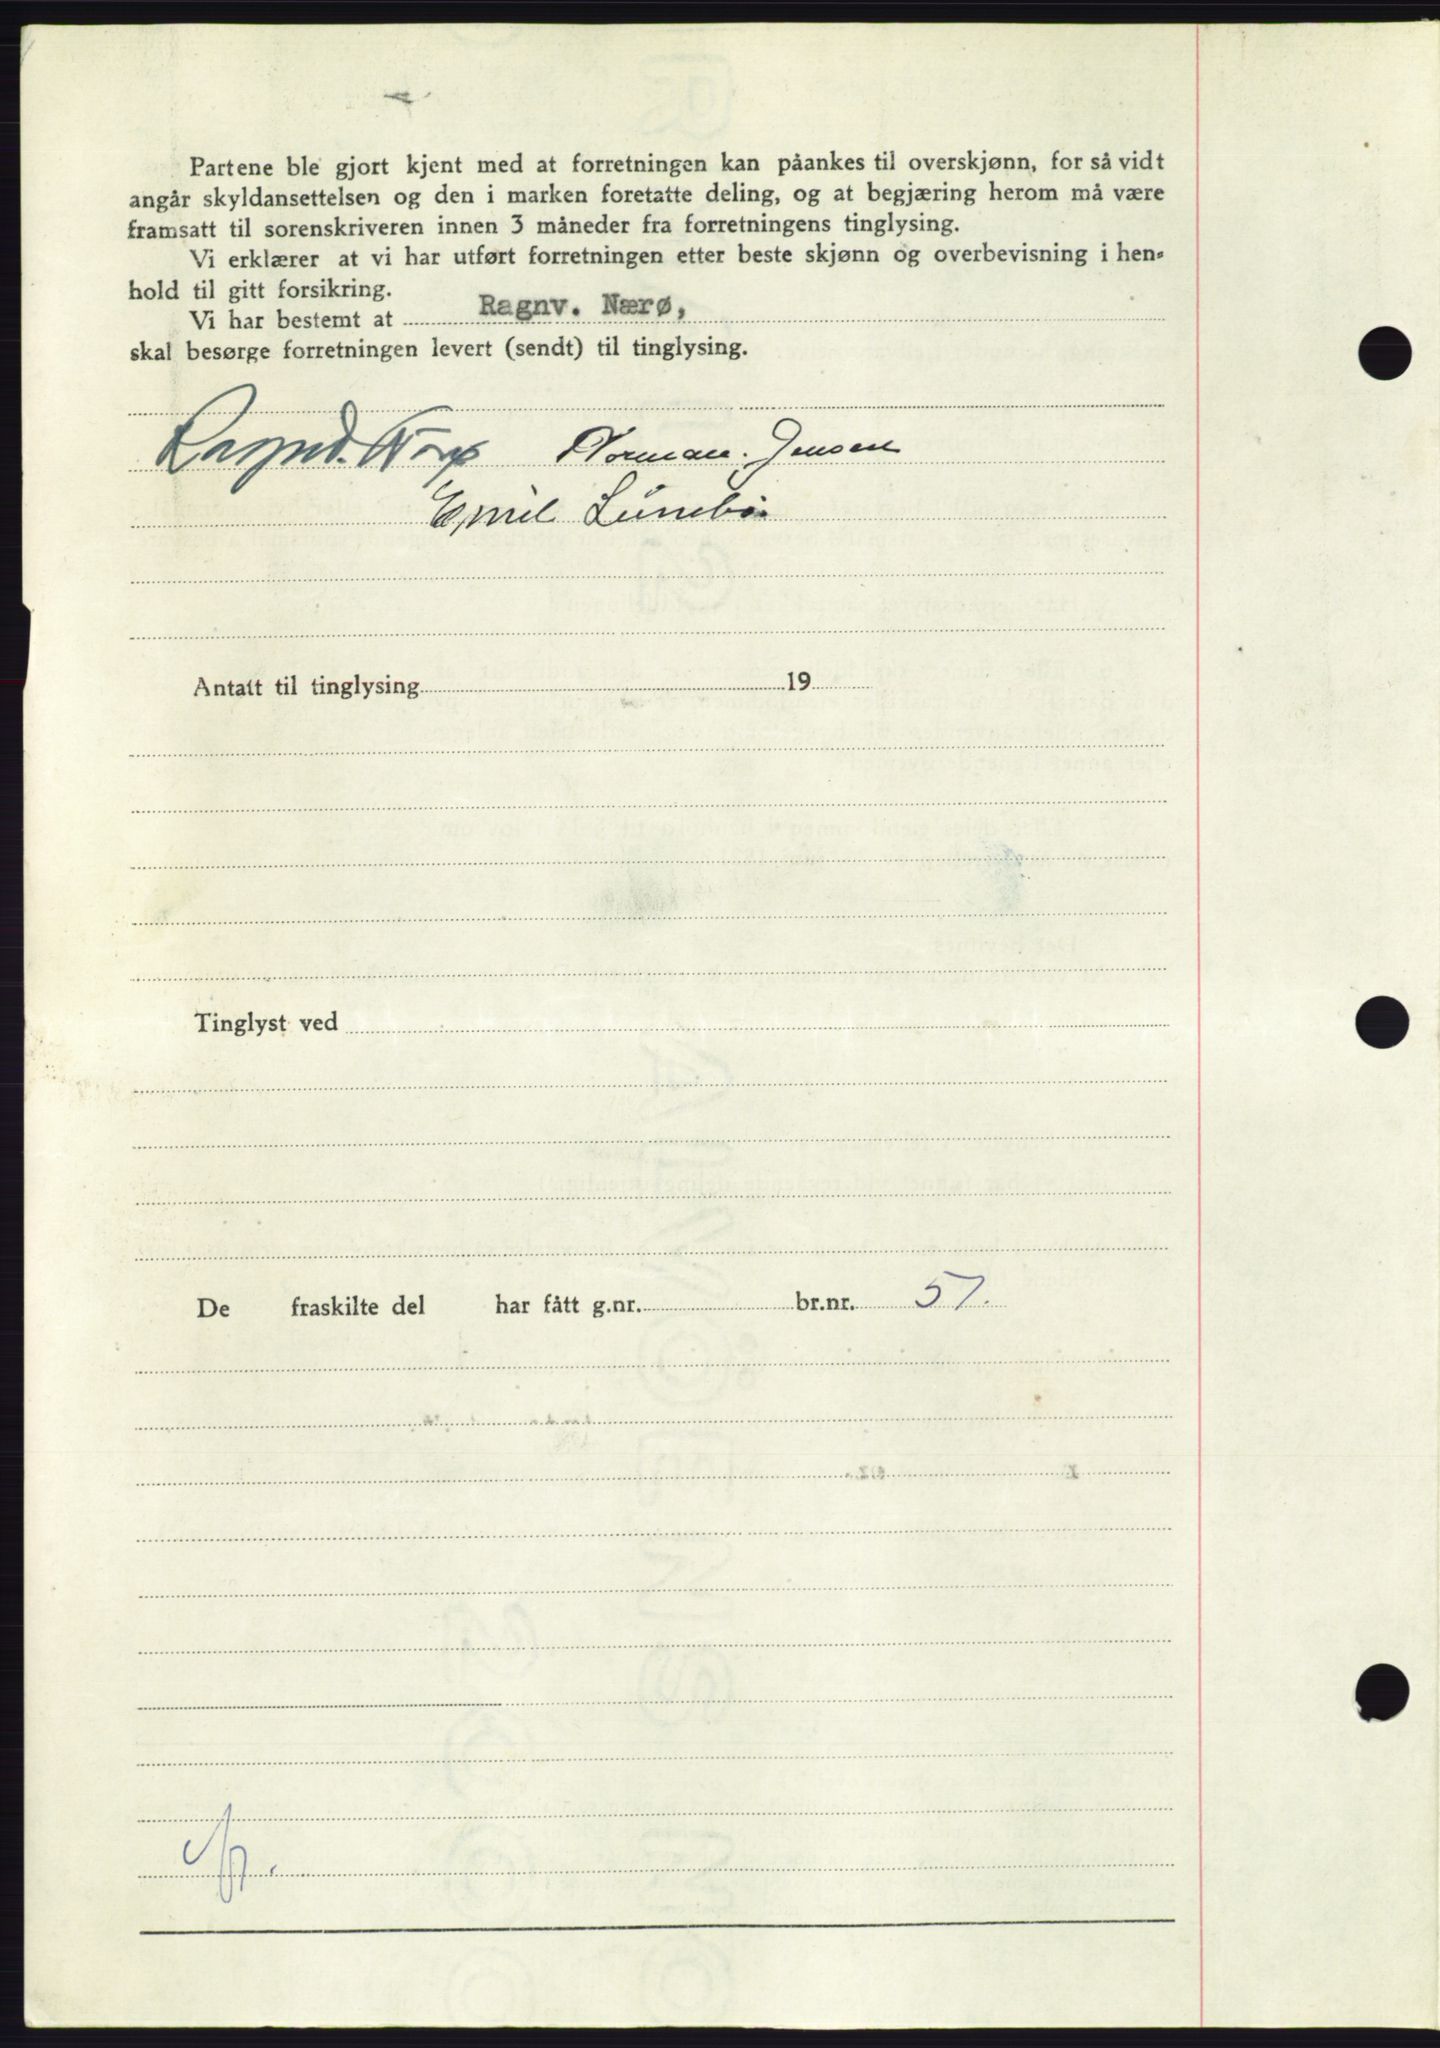 Partene ble gjort kjent med at forretningen kan påankes til overskjønn, for så vidt
angår skyldansettelsen og den i marken foretatte deling, og at begjæring herom må være
framsatt til sorenskriveren innen 3 måneder fra forretningens tinglysing.
Vi erklærer at vi har utført forretningen etter beste skjønn og overbevisning i hen-
hold til gitt forsikring.
Vi har bestemt at Ragnv. Nærø,
skal besørge forretningen levert (sendt) til tinglysing.
Ragnv. Nærø Norman Jensen
Emil
Antatt til tinglysing 19
Tinglyst ved
De fraskilte del har fått g.nr. br.nr. 57.